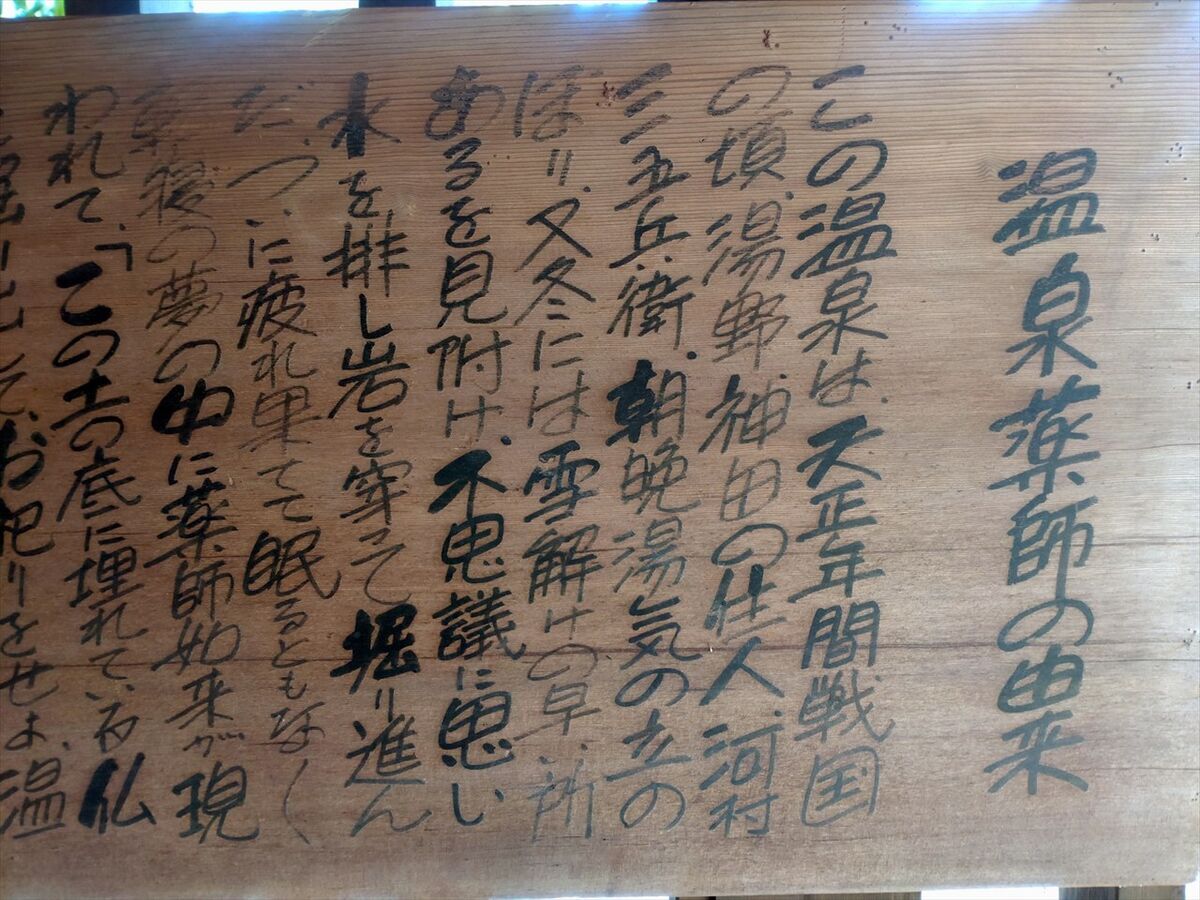 温泉薬師の由来
この温泉は、天正年間戦国
の頃、湯野神田の住人、河村
三五兵衛、朝晩湯気の立の
ぼり、又冬には雪解けの早い所
あるを見附け、不思議に思い
水を排し岩を穿って堀り進ん
だ、ついに疲れ果てて眠るともなく
寝の夢の中に薬師如来が現
われて、「この土の底に埋れている仏
出して、お祀りをせよ、温